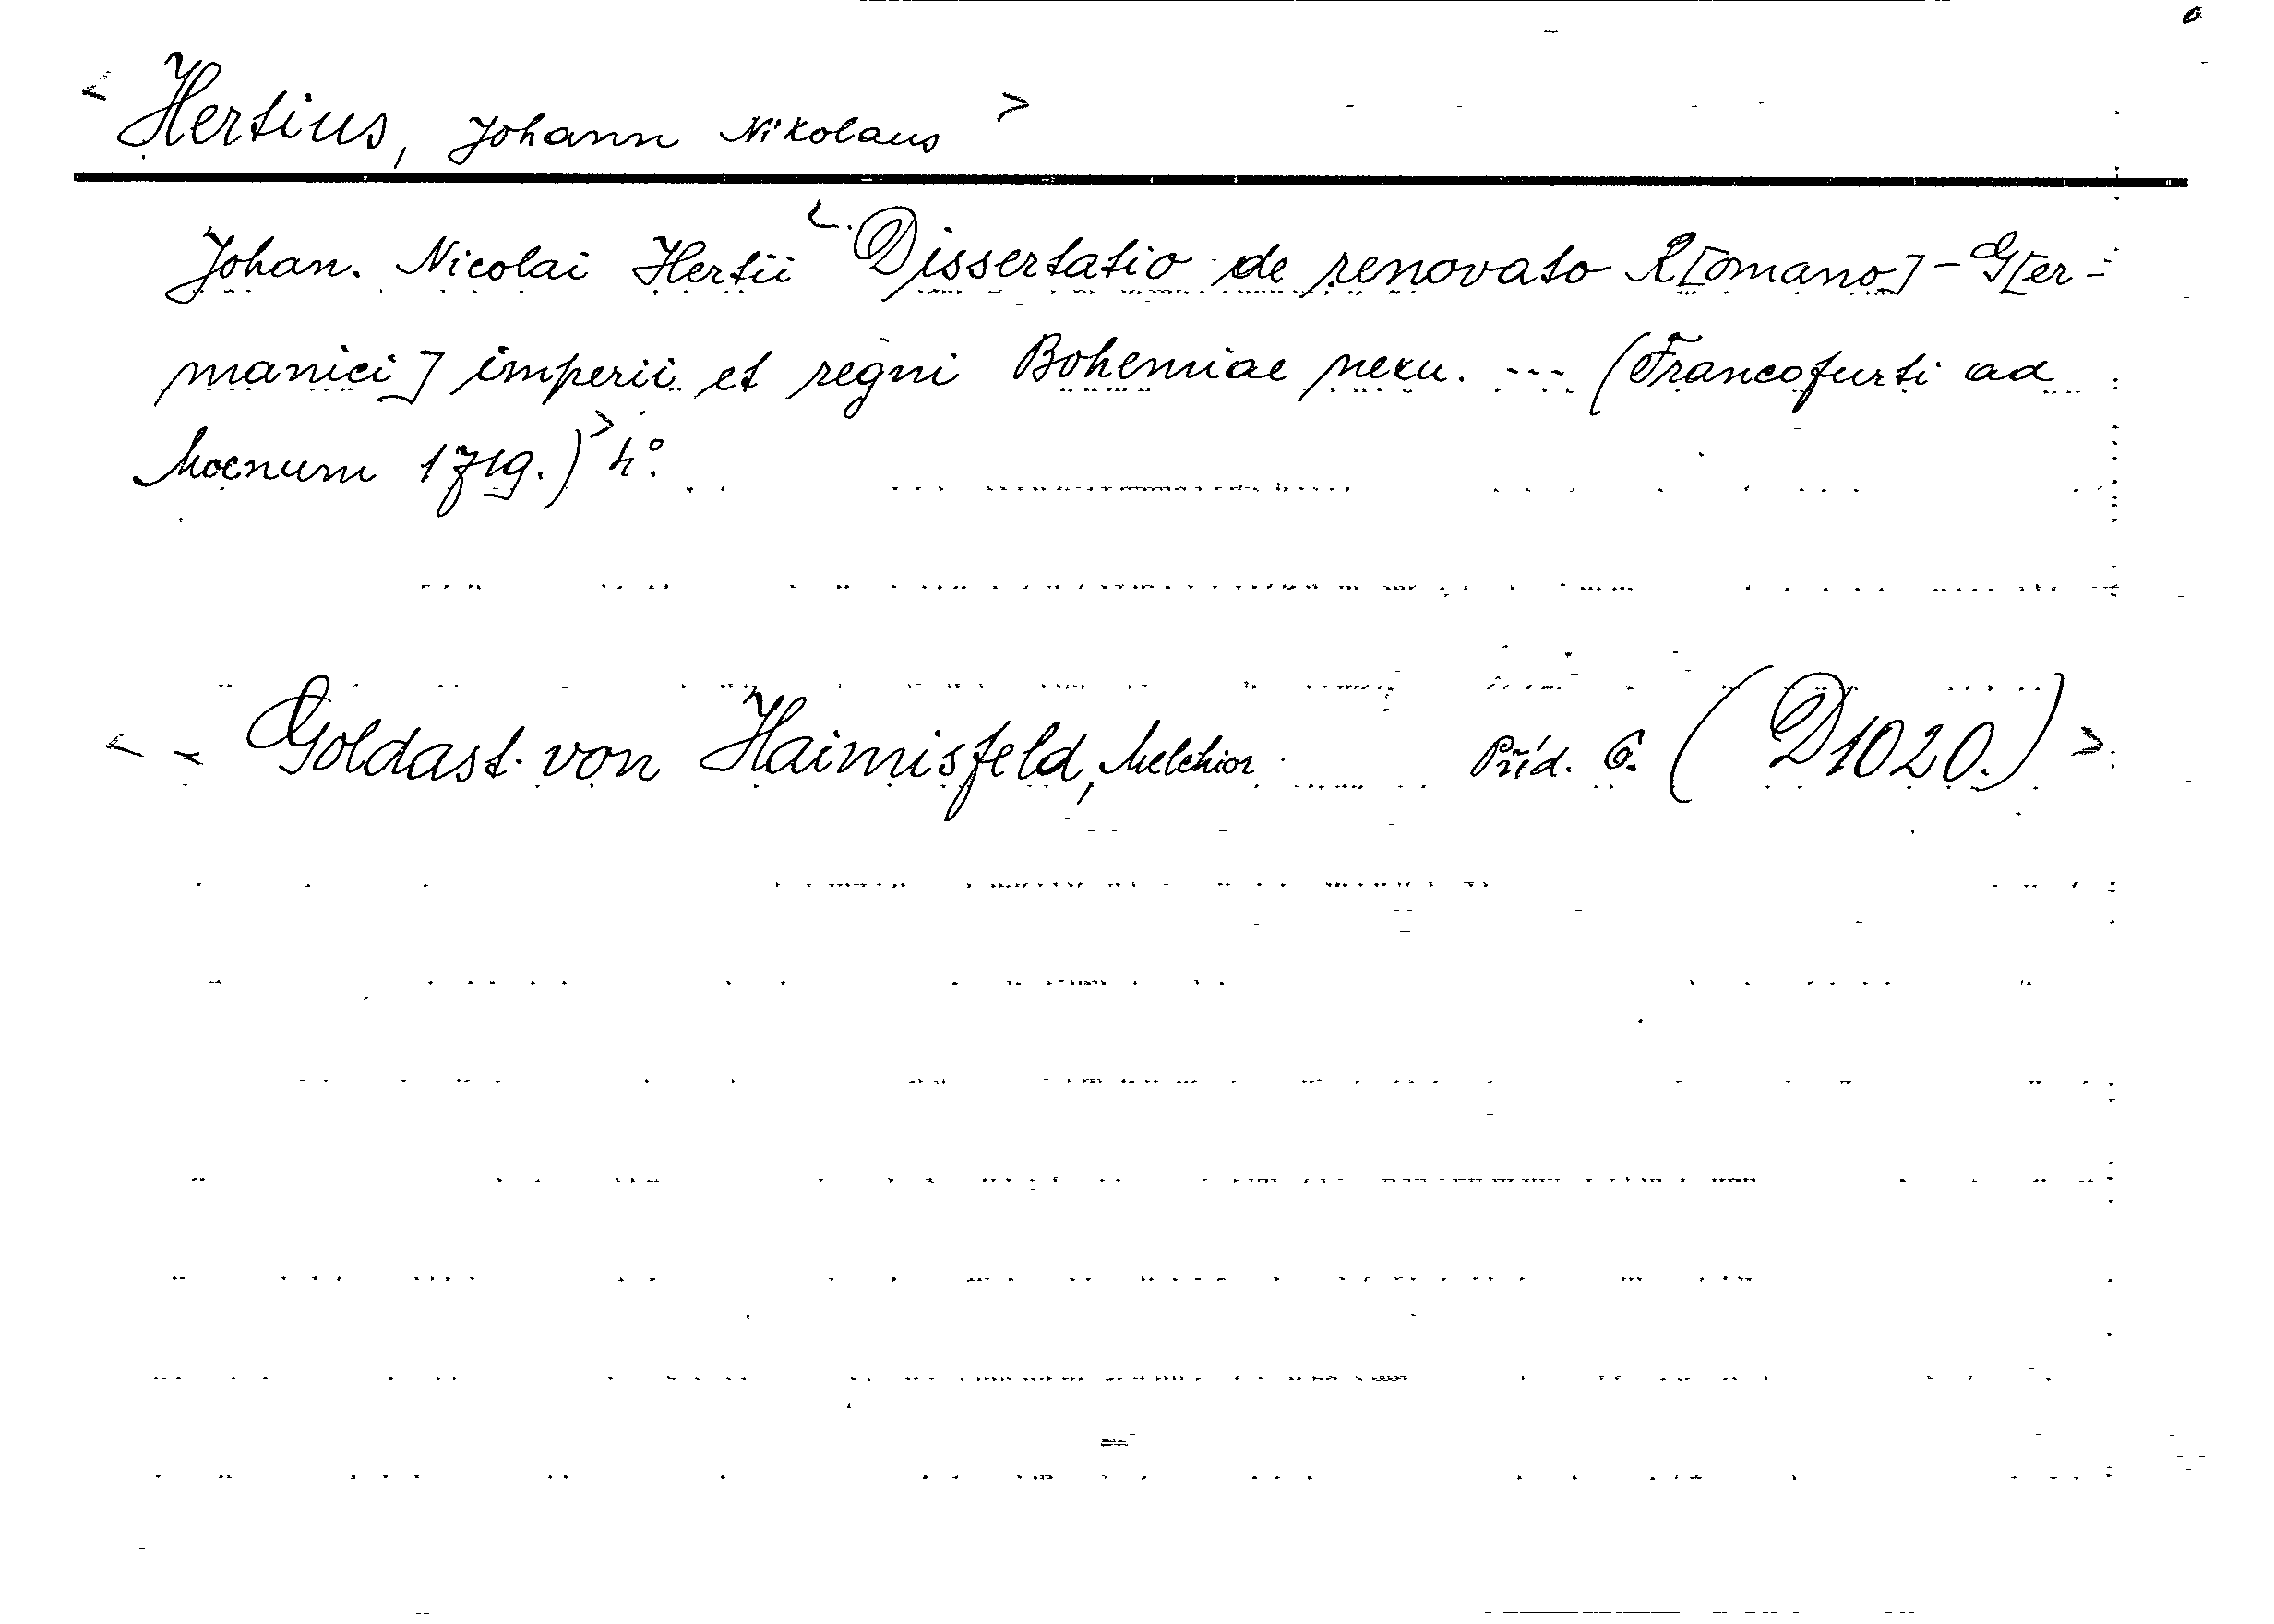 < Hertius, Johann Nikolaus >
Johan. Nicolai Hertii < Dissertatio de renovato R[omano]-G[er-
manici] imperii et regni Bohemiae nexu. --- (Francofurti ad
Moenum 1719.) > 4°.
< - Goldast von Haimisfeld, Melchior Příd. 6. (D1020.) >